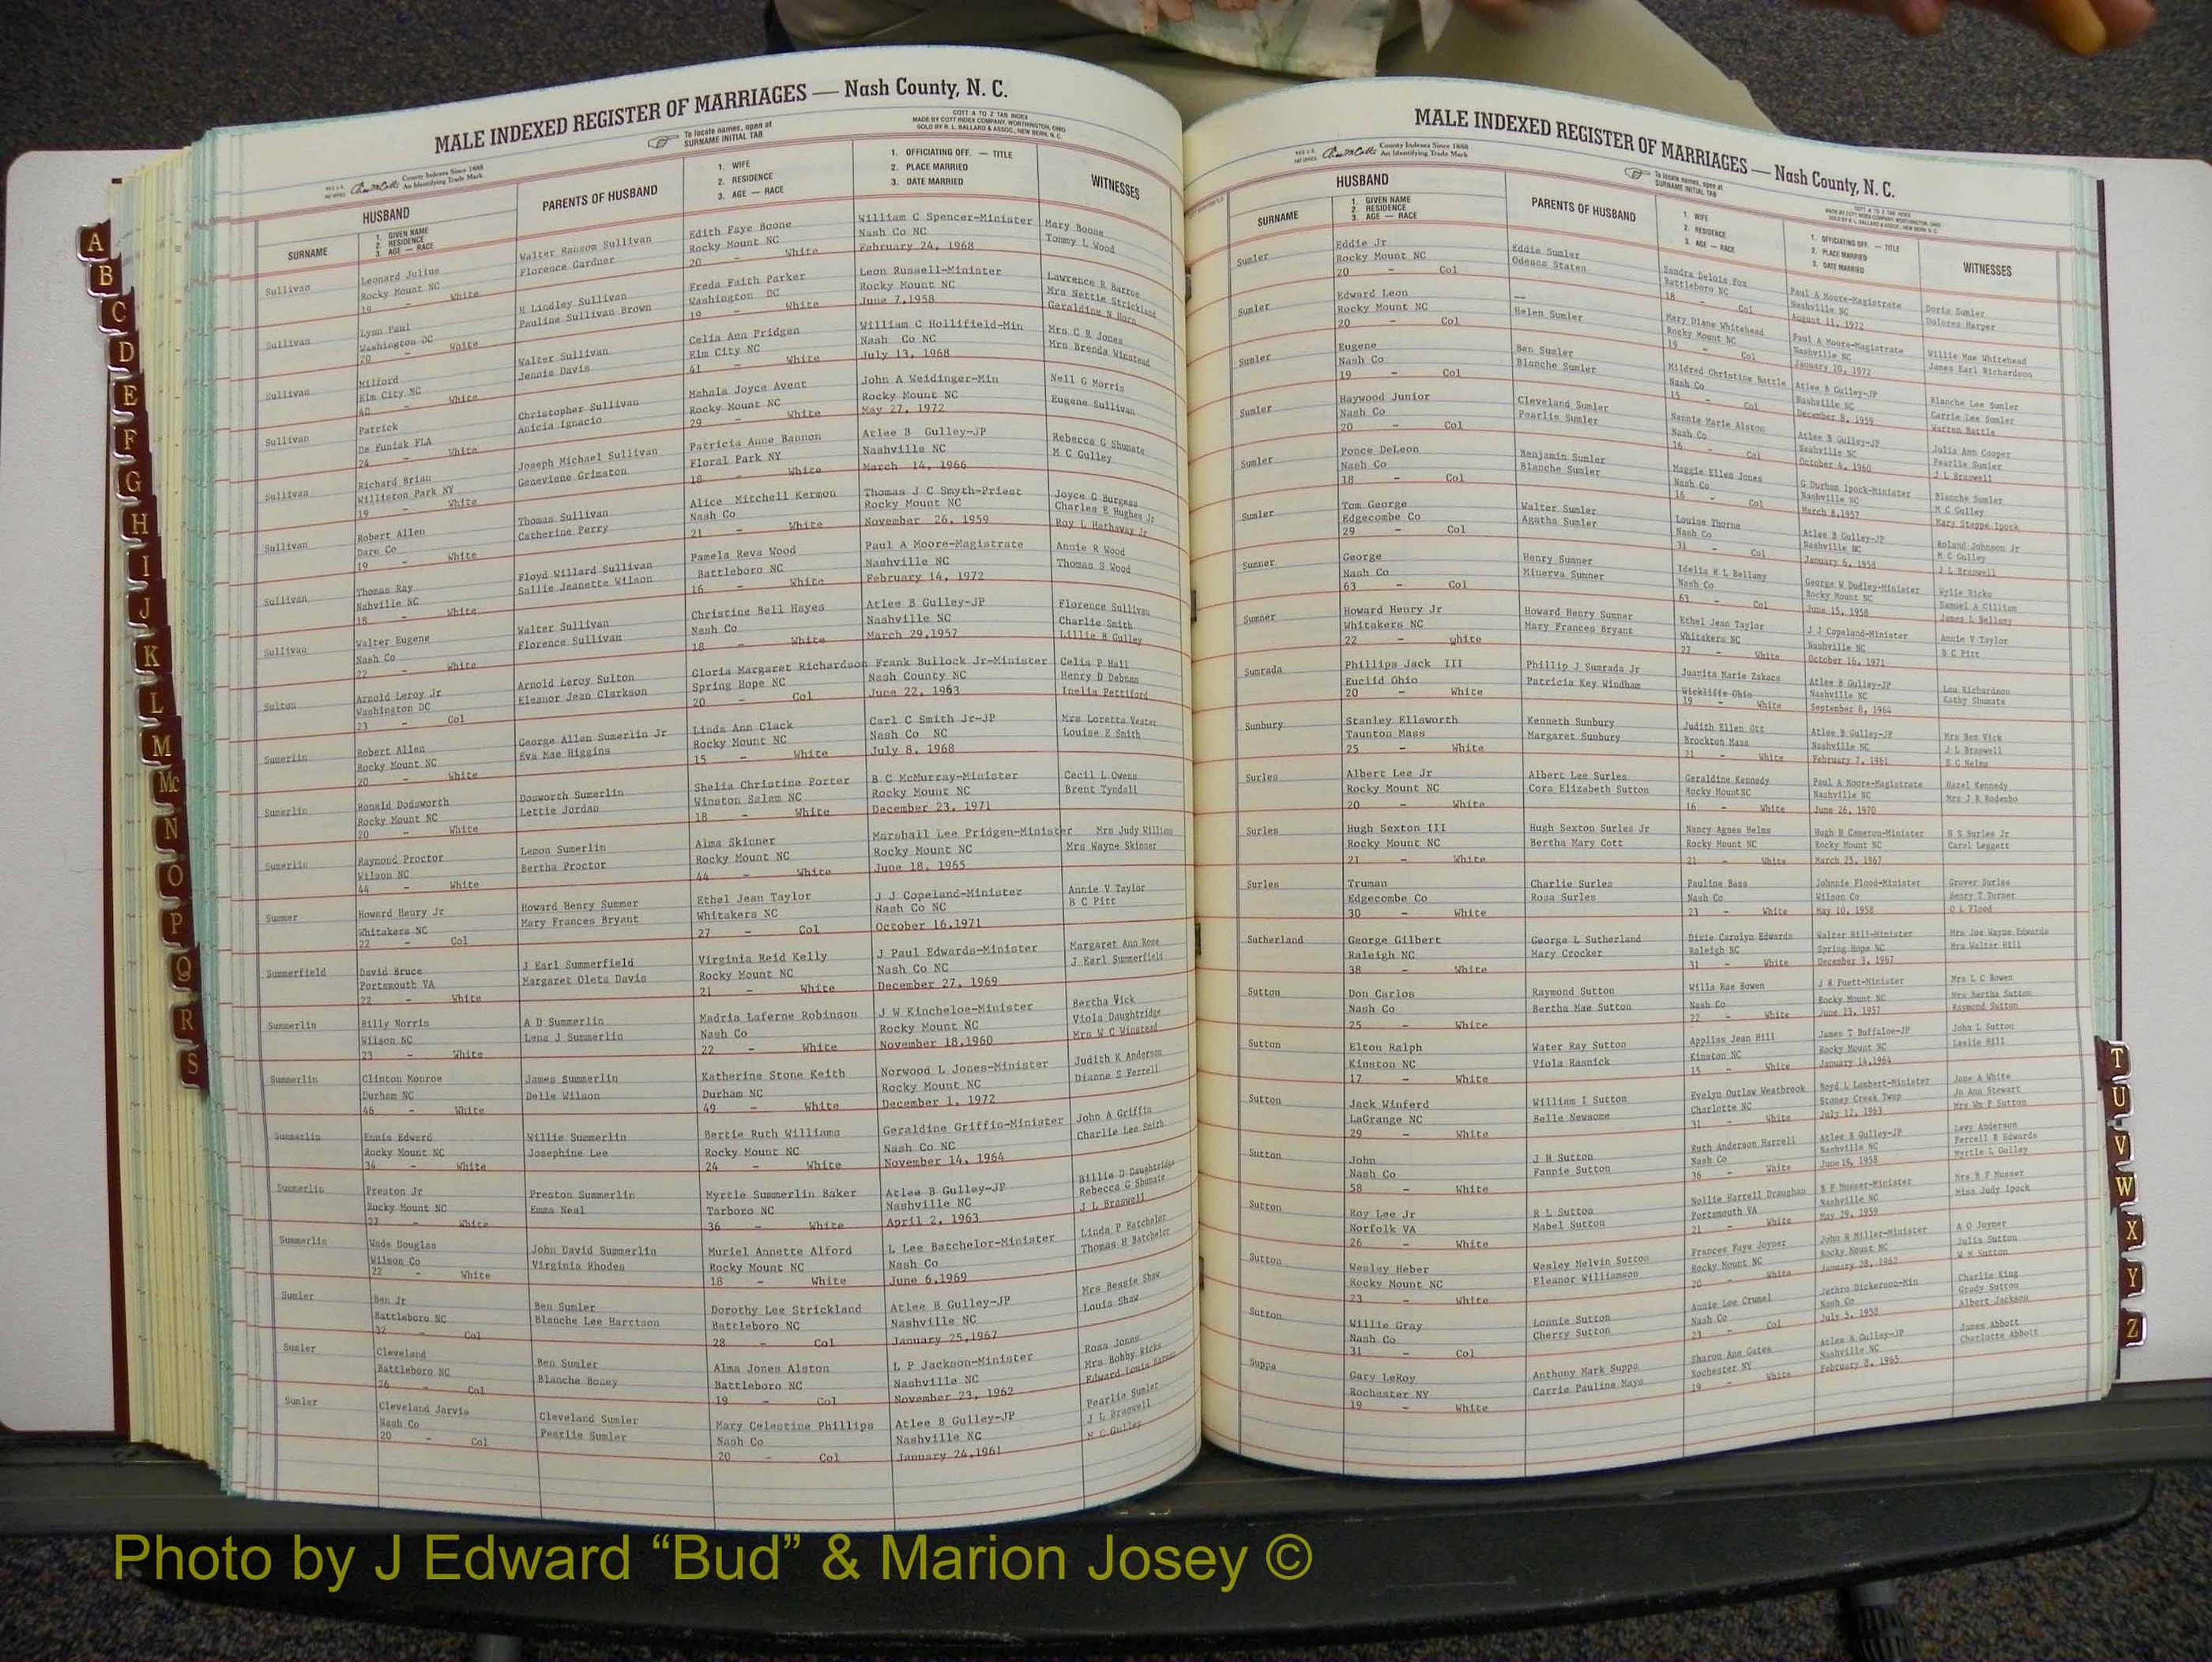 MALE INDEXED REGISTER OF MARRIAGES — Nash County, N. C.
To locate names, open at
SURNAME INITIAL TAB
COTT A TO Z TAB INDEX
MADE BY COTT INDEX COMPANY, WORTHINGTON, OHIO
SOLD BY R. L. BALLARD & ASSOC., NEW BERN, N. C.
County Indexes Since 1888
An Identifying Trade Mark
HUSBAND
SURNAME
1. GIVEN NAME
2. RESIDENCE
3. AGE — RACE
PARENTS OF HUSBAND
1. WIFE
2. RESIDENCE
3. AGE — RACE
1. OFFICIATING OFF. — TITLE
2. PLACE MARRIED
3. DATE MARRIED
WITNESSES
Sullivan Leonard Julius Walter Ransom Sullivan Edith Faye Boone William C Spencer-Minister Mary Boone
Rocky Mount NC Florence Gardner Rocky Mount NC Nash Co NC Tommy L Wood
19 - White 20 - White February 24, 1968
Sullivan Lynn Paul H Lindley Sullivan Freda Faith Parker Leon Russell-Minister Lawrence R Barros
Washington DC Pauline Sullivan Brown Washington DC Rocky Mount NC Mrs Nettie Strickland
20 - White 19 - White June 7,1958 Geraldine N Horn
Sullivan Milford Walter Sullivan Celia Ann Pridgen William C Hollifield-Min Mrs C R Jones
Elm City NC Jennie Davis Elm City NC Nash Co NC Mrs Brenda Winstead
40 - White 41 - White July 13, 1968
Sullivan Patrick Christopher Sullivan Mahala Joyce Avent John A Weidinger-Min Nell G Morris
De Funiak FLA Anicia Ignacio Rocky Mount NC Rocky Mount NC Eugene Sullivan
24 - White 29 - White May 27, 1972
Sullivan Richard Brian Joseph Michael Sullivan Patricia Anne Bannon Atlee B Gulley-JP Rebecca G Shumate
Williston Park NY Geneviene Grimston Floral Park NY Nashville NC M C Gulley
19 - White 18 - White March 14, 1966
Sullivan Robert Allen Thomas Sullivan Alice Mitchell Kermon Thomas J C Smyth-Priest Joyce G Burgess
Dare Co Catherine Perry Nash Co Rocky Mount NC Charles E Hughes Jr
19 - White 21 - White November 26, 1959 Roy L Hathaway Jr
Sullivan Thomas Ray Floyd Willard Sullivan Pamela Reva Wood Paul A Moore-Magistrate Annie R Wood
Nahville NC Sallie Jeanette Wilson Battleboro NC Nashville NC Thomas S Wood
18 - White 16 - White February 14, 1972
Sullivan Walter Eugene Walter Sullivan Christine Bell Hayes Atlee B Gulley-JP Florence Sullivan
Nash Co Florence Sullivan Nash Co Nashville NC Charlie Smith
22 - White 18 - White March 29,1957 Lillie B Gulley
Sulton Arnold Leroy Jr Arnold Leroy Sulton Gloria Margaret Richardson Frank Bullock Jr-Minister Celia P Hall
Washington DC Eleanor Jean Clarkson Spring Hope NC Nash County NC Henry D Debnam
23 - Col 20 - Col June 22, 1963 Inelia Pettiford
Sumerlin Robert Allen George Allen Sumerlin Jr Linda Ann Clack Carl C Smith Jr-JP Mrs Loretta Vester
Rocky Mount NC Eva Mae Higgins Rocky Mount NC Nash Co NC Louise E Smith
20 - White 15 - White July 8, 1968
Sumerlin Ronald Dodsworth Dosworth Sumerlin Shelia Christine Porter B C McMurray-Minister Cecil L Owens
Rocky Mount NC Lettie Jordan Winston Salem NC Rocky Mount NC Brent Tyndall
20 - White 18 - White December 23, 1971
Sumerlin Raymond Proctor Lemon Sumerlin Alma Skinner Marshall Lee Pridgen-Minister Mrs Judy Williams
Wilson NC Bertha Proctor Rocky Mount NC Rocky Mount NC Mrs Wayne Skinner
44 - White 44 - White June 18, 1965
Summer Howard Henry Jr Howard Henry Summer Ethel Jean Taylor J J Copeland-Minister Annie V Taylor
Whitakers NC Mary Frances Bryant Whitakers NC Nash Co NC B C Pitt
22 - Col 27 - Col October 16,1971
Summerfield David Bruce J Earl Summerfield Virginia Reid Kelly J Paul Edwards-Minister Margaret Ann Rose
Portsmouth VA Margaret Oleta Davis Rocky Mount NC Nash Co NC J Earl Summerfield
22 - White 21 - White December 27, 1969
Summerlin Billy Norris A D Summerlin Madria Laferne Robinson J W Kincheloe-Minister Bertha Vick
Wilson NC Lena J Summerlin Nash Co Rocky Mount NC Viola Daughtridge
23 - White 22 - White November 18,1960 Mrs W C Winstead
Summerlin Clinton Monroe James Summerlin Katherine Stone Keith Norwood L Jones-Minister Judith K Anderson
Durham NC Delle Wilson Durham NC Rocky Mount NC Dianne S Ferrell
46 - White 49 - White December 1, 1972
Summerlin Ennis Edward Willie Summerlin Bertie Ruth Williams Geraldine Griffin-Minister John A Griffin
Rocky Mount NC Josephine Lee Rocky Mount NC Nash Co NC Charlie Lee Smith
34 - White 24 - White November 14, 1964
Summerlin Preston Jr Preston Summerlin Myrtle Summerlin Baker Atlee B Gulley-JP Billie D Daughtridge
Rocky Mount NC Emma Neal Tarboro NC Nashville NC Rebecca G Shumate
27 - White 36 - White April 2, 1963 J L Braswell
Summerlin Wade Douglas John David Summerlin Muriel Annette Alford L Lee Batchelor-Minister Linda P Batchelor
Wilson Co Virginia Rhodes Rocky Mount NC Nash Co Thomas H Batchelor
22 - White 18 - White June 6,1969
Sumler Ben Jr Ben Sumler Dorothy Lee Strickland Atlee B Gulley-JP Mrs Bessie Shaw
Battleboro NC Blanche Lee Harrison Battleboro NC Nashville NC Louis Shaw
32 - Col 28 - Col January 25,1967
Sumler Cleveland Ben Sumler Alma Jones Alston L P Jackson-Minister Rosa Jones
Battleboro NC Blanche Boney Battleboro NC Nashville NC Mrs Bobby Ricks
26 - Col 19 - Col November 23, 1962 Edward Louis
Sumler Cleveland Jarvis Cleveland Sumler Mary Celestine Phillips Atlee B Gulley-JP Pearlie Sumler
Nash Co Pearlie Sumler Nash Co Nashville NC J L Braswell
20 - Col 20 - Col January 24,1961 M C Gulley
MALE INDEXED REGISTER OF MARRIAGES — Nash County, N. C.
County Indexes Since 1888
An Identifying Trade Mark
To locate names, open at
SURNAME INITIAL TAB
COTT A TO Z TAB INDEX
MADE BY COTT INDEX COMPANY, WORTHINGTON, OHIO
SOLD BY R. L. BALLARD & ASSOC., NEW BERN, N. C.
HUSBAND
SURNAME
1. GIVEN NAME
2. RESIDENCE
3. AGE — RACE
PARENTS OF HUSBAND
1. WIFE
2. RESIDENCE
3. AGE — RACE
1. OFFICIATING OFF. — TITLE
2. PLACE MARRIED
3. DATE MARRIED
WITNESSES
Sumler Eddie Jr Eddie Sumler Sandra Delois Fox Paul A Moore-Magistrate Doris Sumler
Rocky Mount NC Odessa Staten Battleboro NC Nashville NC Dolores Harper
20 - Col 18 - Col August 11, 1972
Sumler Edward Leon -- Mary Diane Whitehead Paul A Moore-Magistrate Willie Mae Whitehead
Rocky Mount NC Helen Sumler Rocky Mount NC Nashville NC James Earl Richardson
20 - Col 19 - Col January 20, 1972
Sumler Eugene Ben Sumler Mildred Christine Battle Atlee B Gulley-JP Blanche Lee Sumler
Nash Co Blanche Sumler Nash Co Nashville NC Carrie Lee Sumler
19 - Col 15 - Col December 8, 1959 Warren Battle
Sumler Haywood Junior Cleveland Sumler Nannie Marie Alston Atlee B Gulley-JP Julia Ann Cooper
Nash Co Pearlie Sumler Nash Co Nashville NC Pearlie Sumler
20 - Col 16 - Col October 4, 1960 J L Braswell
Sumler Ponce DeLeon Benjamin Sumler Maggie Ellen Jones G Durham Ipock-Minister Blanche Sumler
Nash Co Blanche Sumler Nash Co Nashville NC M C Gulley
18 - Col 16 - Col March 8,1957 Mary Steppe Ipock
Sumler Tom George Walter Sumler Louise Thorne Atlee B Gulley-JP Roland Johnson Jr
Edgecombe Co Agatha Sumler Nash Co Nashville NC M C Gulley
29 - Col 31 - Col January 6, 1958 J L Braswell
Sumner George Henry Sumner Idelia R L Bellamy George W Dudley-Minister Wylie Ricks
Nash Co Minerva Sumner Nash Co Rocky Mount NC Samuel A Gilliam
63 - Col 63 - Col June 15, 1958 James L Bellamy
Sumner Howard Henry Jr Howard Henry Sumner Ethel Jean Taylor J J Copeland-Minister Annie V Taylor
Whitakers NC Mary Frances Bryant Whitakers NC Nashville NC B C Pitt
22 - white 27 - White October 16, 1971
Sumrada Phillips Jack III Phillip J Sumrada Jr Juanita Marie Zakacs Atlee B Gulley-JP Lou Richardson
Euclid Ohio Patricia Key Windham Wickliffe Ohio Nashville NC Kathy Shumate
20 - White 19 - White September 8, 1964
Sunbury Stanley Ellsworth Kenneth Sunbury Judith Ellen Ott Atlee B Gulley-JP Mrs Ben Vick
Taunton Mass Margaret Sunbury Brockton Mass Nashville NC J L Braswell
25 - White 21 - White February 7, 1961 E C Nelms
Surles Albert Lee Jr Albert Lee Surles Geraldine Kennedy Paul A Moore-Magistrate Hazel Kennedy
Rocky Mount NC Cora Elizabeth Sutton Rocky MountNC Nashville NC Mrs J R Rodenho
20 - White 16 - White June 26, 1970
Surles Hugh Sexton III Hugh Sexton Surles Jr Nancy Agnes Helms Hugh R Cameron-Minister H S Surles Jr
Rocky Mount NC Bertha Mary Cott Rocky Mount NC Rocky Mount NC Carol Leggett
21 - White 21 - White March 25, 1967
Surles Truman Charlie Surles Pauline Bass Johnnie Flood-Minister Grover Surles
Edgecombe Co Rosa Surles Nash Co Wilson Co Henry T Turner
30 - White 23 - White May 10, 1958 O L Flood
Sutherland George Gilbert George L Sutherland Dixie Carolyn Edwards Walter Hill-Minister Mrs Joe Wayne Edwards
Raleigh NC Mary Crocker Raleigh NC Spring Hope NC Mrs Walter Hill
38 - White 31 - White December 3, 1967
Sutton Don Carlos Raymond Sutton Willa Rae Bowen J R Puett-Minister Mrs L C Bowen
Nash Co Bertha Mae Sutton Nash Co Rocky Mount NC Mrs Bertha Sutton
25 - White 22 - White June 23, 1957 Raymond Sutton
Sutton Elton Ralph Water Ray Sutton Appliss Jean Hill James T Buffaloe-JP John L Sutton
Kinston NC Viola Rasnick Kinston NC Rocky Mount NC Leslie Hill
17 - White 15 - White January 14,1964
Sutton Jack Winferd William I Sutton Evelyn Outlaw Westbrook Boyd L Lambert-Minister June A White
LaGrange NC Belle Newsome Charlotte NC Stoney Creek Twsp Jo Ann Stewart
29 - White 31 - White July 12, 1963 Mrs Wm P Sutton
Sutton John J H Sutton Ruth Anderson Harrell Atlee B Gulley-JP Levy Anderson
Nash Co Fannie Sutton Nash Co Nashville NC Ferrell R Edwards
58 - White 36 - White June 19, 1958 Myrtle L Gulley
Sutton Roy Lee Jr R L Sutton Nollie Harrell Draughan B F Musser-Minister Mrs B F Musser
Norfolk VA Mabel Sutton Portsmouth VA Nashville NC Miss Judy Ipock
26 - White 21 - White May 29, 1959
Sutton Wesley Heber Wesley Melvin Sutton Frances Faye Joyner John N Miller-Minister A O Joyner
Rocky Mount NC Eleanor Williamson Rocky Mount NC Rocky Mount NC Julia Sutton
23 - White 20 - White January 28, 1962 W M Sutton
Sutton Willie Gray Lonnie Sutton Annie Lee Crumel Jethro Dickerson-Min Charlie King
Nash Co Cherry Sutton Nash Co Nash Co Grady Sutton
31 - Col 23 - Col July 5, 1958 Albert Jackson
Suppa Gary LeRoy Anthony Mark Suppa Sharon Ann Gates Atlee B Gulley-JP James Abbott
Rochester NY Carrie Pauline Mays Rochester NY Nashville NC Charlotte Abbott
19 - White 19 - White February 8, 1965
A
B
C
D
E
F
G
H
I
J
K
L
M
Mc
N
O
P
Q
R
S
T
U
V
W
X
Y
Z
Photo by J Edward “Bud” & Marion Josey ©